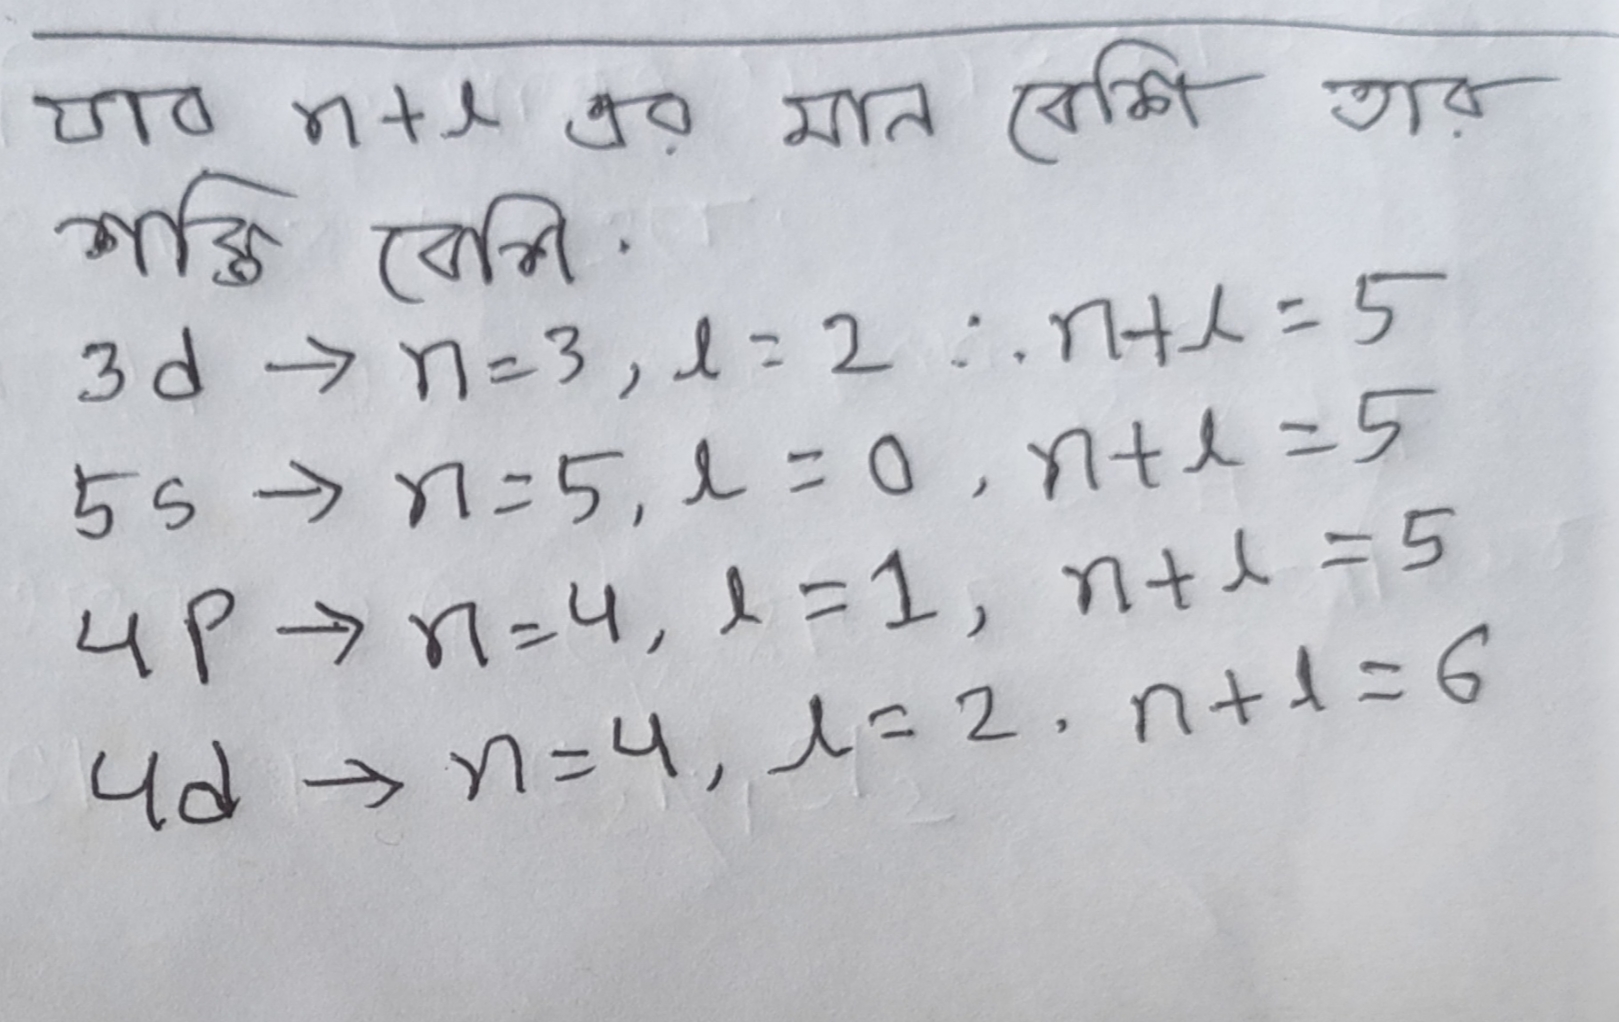 যার n+l এর মান বেশি তার
শক্তি বেশি.
3d → n=3, l=2 ∴ n+l=5
5s → n=5, l=0, n+l=5
4p → n=4, l=1, n+l=5
4d → n=4, l=2. n+l=6